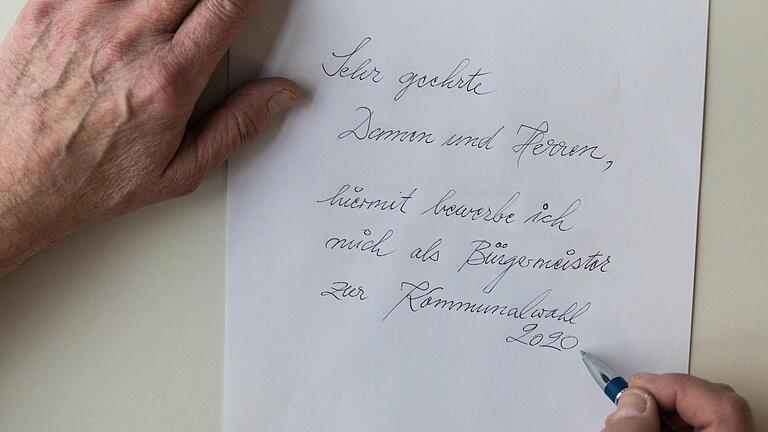 Sehr geehrte
Damen und Herren,
hiermit bewerbe ich
mich als Bürgermeister
zur Kommunalwahl
2020